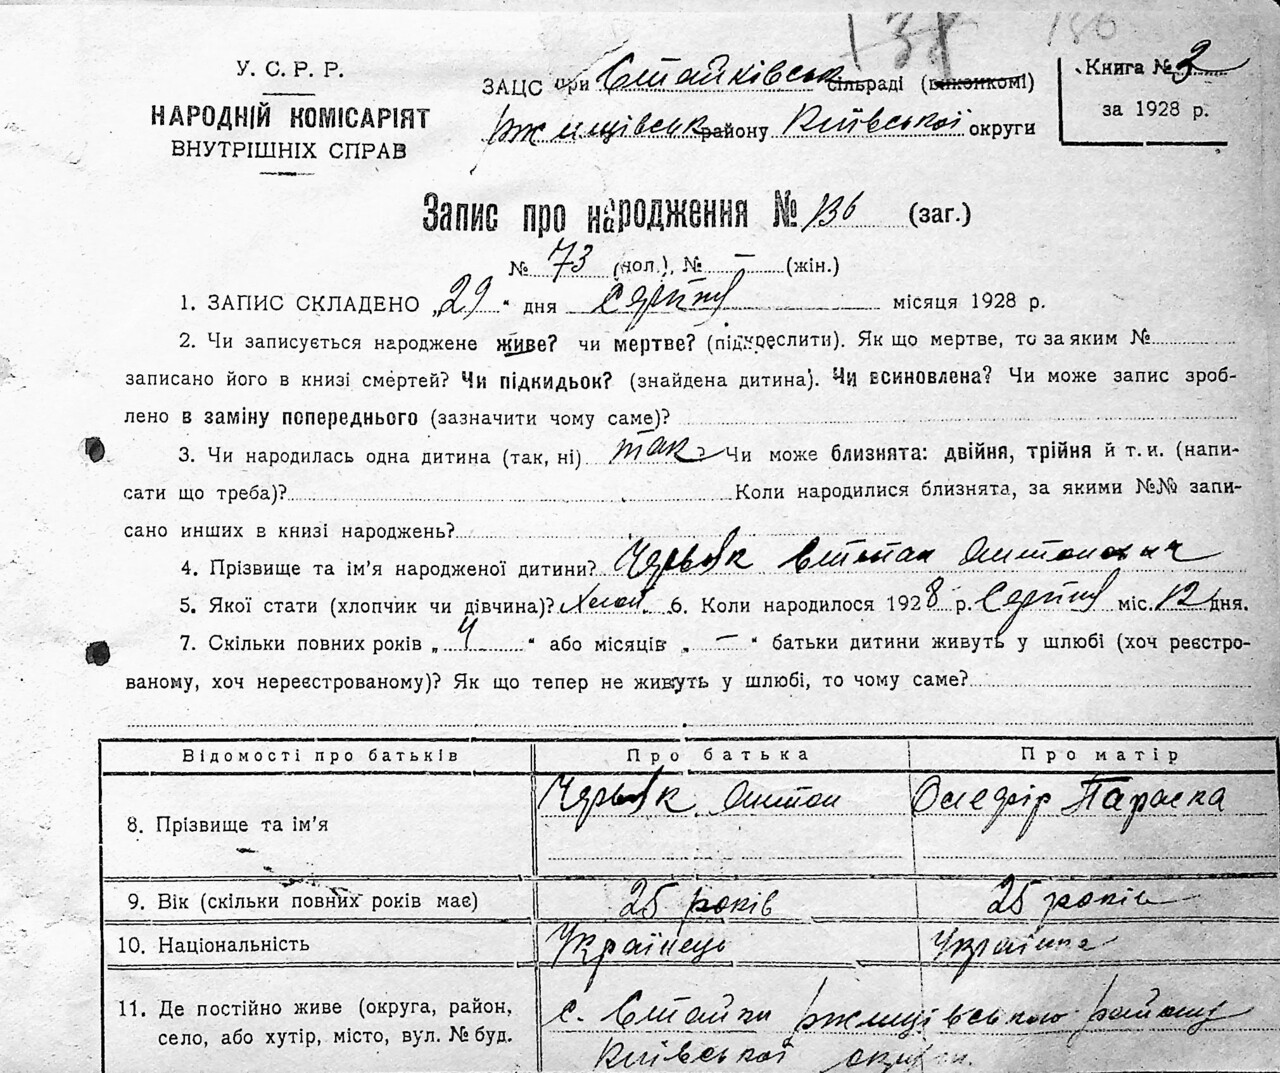 138
180
У. С. Р. Р.
НАРОДНІЙ КОМІСАРІЯТ
ВНУТРІШНІХ СПРАВ
ЗАЦС при Стайківськ сільраді (виконкомі)
Ржищівськ району Київської округи
Книга № 2
за 1928 р.
Запис про народження № 136 (заг.)
№ 73 (чол.), № — (жін.)
1. ЗАПИС СКЛАДЕНО „29“ дня Серпня місяця 1928 р.
2. Чи записується народжене живе? чи мертве? (підкреслити). Як що мертве, то за яким №
записано його в книзі смертей? Чи підкидьок? (знайдена дитина). Чи всиновлена? Чи може запис зроб-
лено в заміну попереднього (зазначити чому саме)?
3. Чи народилась одна дитина (так, ні) так Чи може близнята: двійня, трійня й т. и. (напи-
сати що треба)? Коли народилися близнята, за якими №№ запи-
сано инших в книзі народжень?
4. Прізвище та ім'я народженої дитини? Черв'як Степан Антонович
5. Якої стати (хлопчик чи дівчина)? Хлоп. 6. Коли народилося 1928 р. Серпня міс. 12 дня.
7. Скільки повних років „4“ або місяців „—“ батьки дитини живуть у шлюбі (хоч реєстро-
ваному, хоч нереєстрованому)? Як що тепер не живуть у шлюбі, то чому саме?
Відомості про батьків Про батька Про матір
8. Прізвище та ім'я Черв'як Антон Олефір Параска
9. Вік (скільки повних років має) 25 років 25 років
10. Національність Українець Українка
11. Де постійно живе (округа, район, с. Стайки Ржищівського району
село, або хутір, місто, вул. № буд. Київської округи.